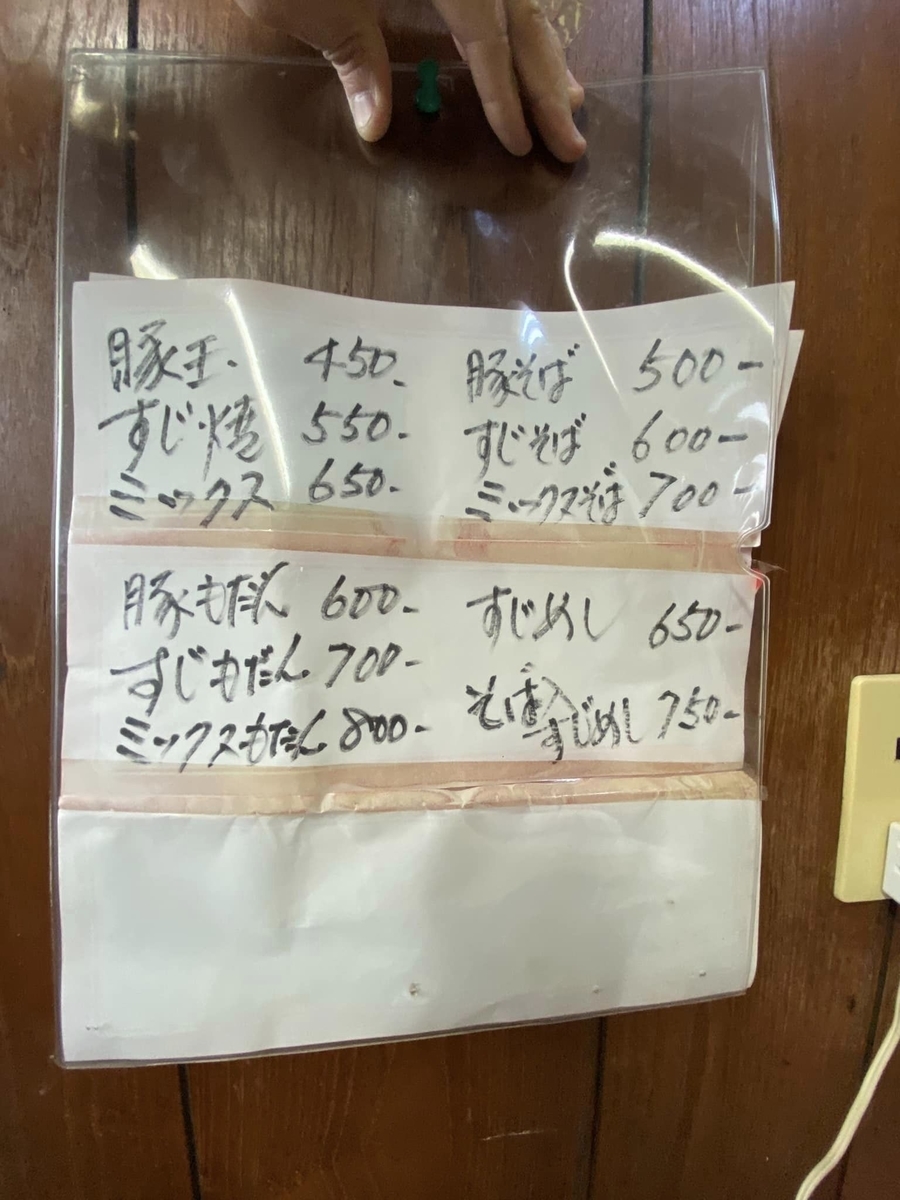 豚玉. 450.
すじ焼 550-
ミックス 650-
豚そば 500-
すじそば 600-
ミックスそば 700-
豚もだん 600-
すじもだん 700-
ミックスもだん 800-
すじめし 650-
そば入
すじめし 750-